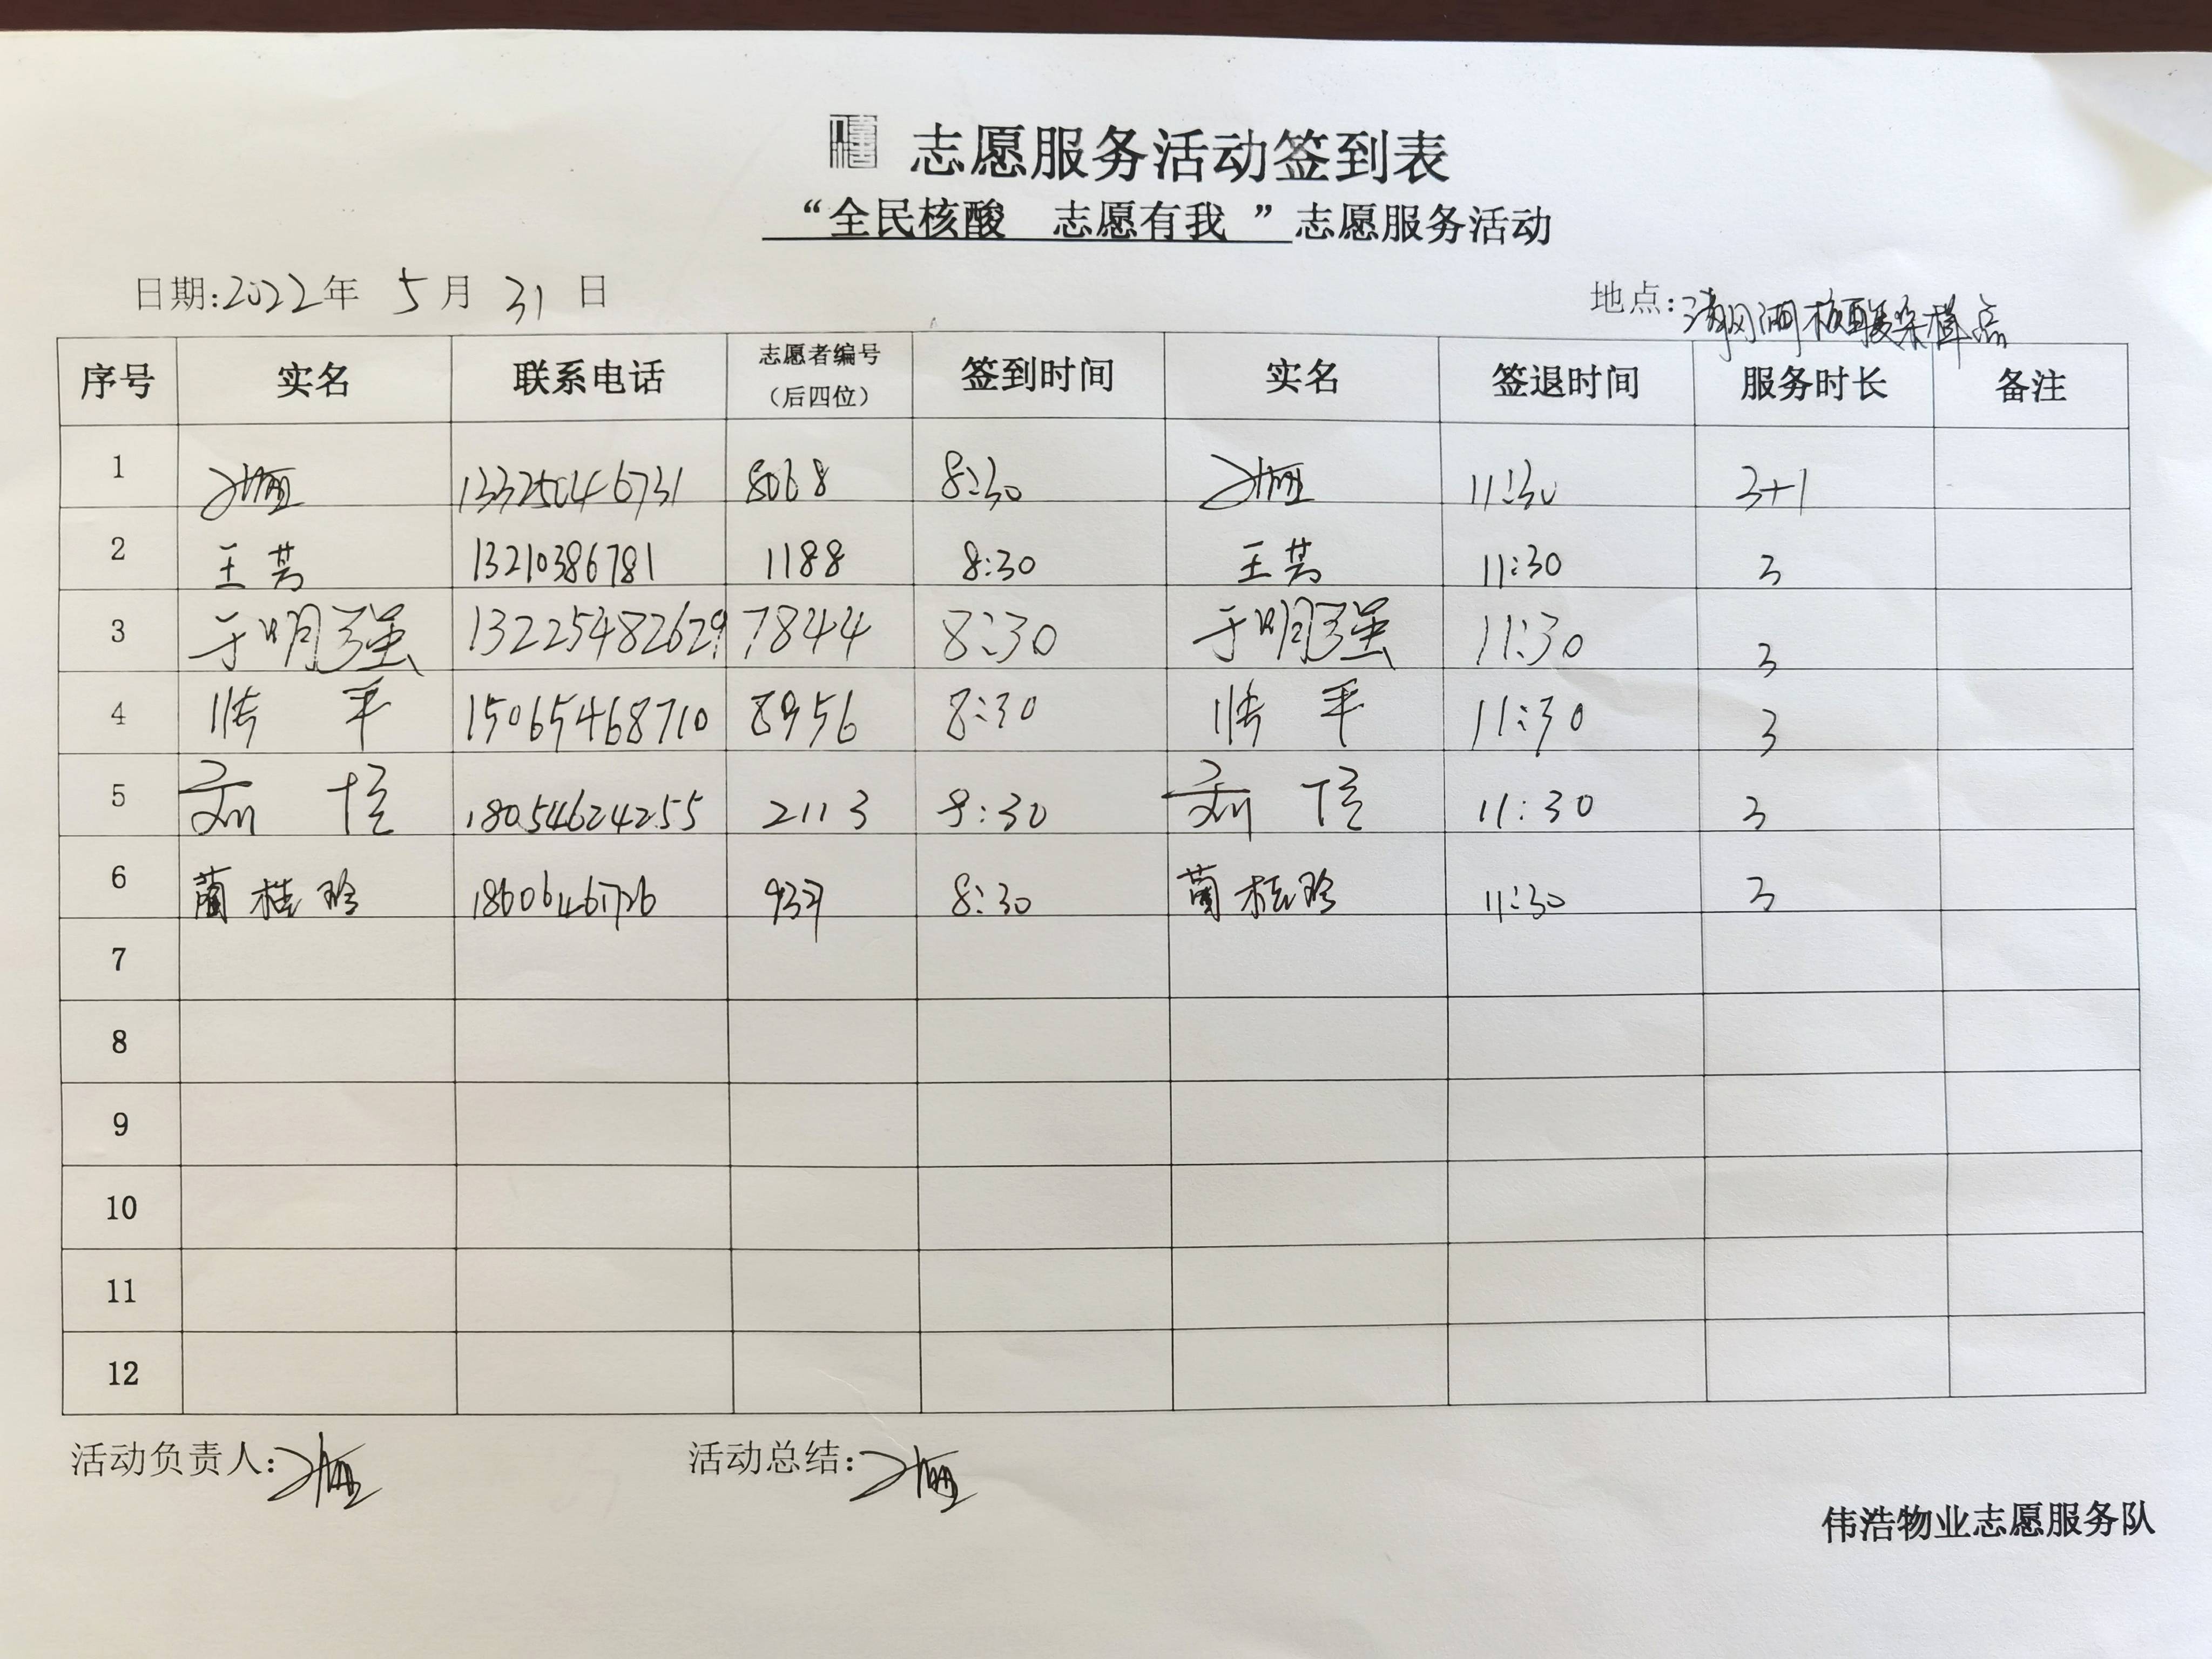 志愿服务活动签到表
“全民核酸 志愿有我 ”志愿服务活动
日期:2022年 5月 31 日 地点:清风湖核酸采样点
序号 实名 联系电话 志愿者编号（后四位） 签到时间 实名 签退时间 服务时长 备注
1 13325046731 8068 8:30 11:30 3+1
2 王芸 13210386781 1188 8:30 王芸 11:30 3
3 于明强 13225482629 7844 8:30 于明强 11:30 3
4 平 15065468710 8956 8:30 平 11:30 3
5 刘 18054624255 2113 8:30 刘 11:30 3
6 蔺桂玲 8:30 蔺桂玲 11:30 3
7
8
9
10
11
12
活动负责人: 活动总结:
伟浩物业志愿服务队